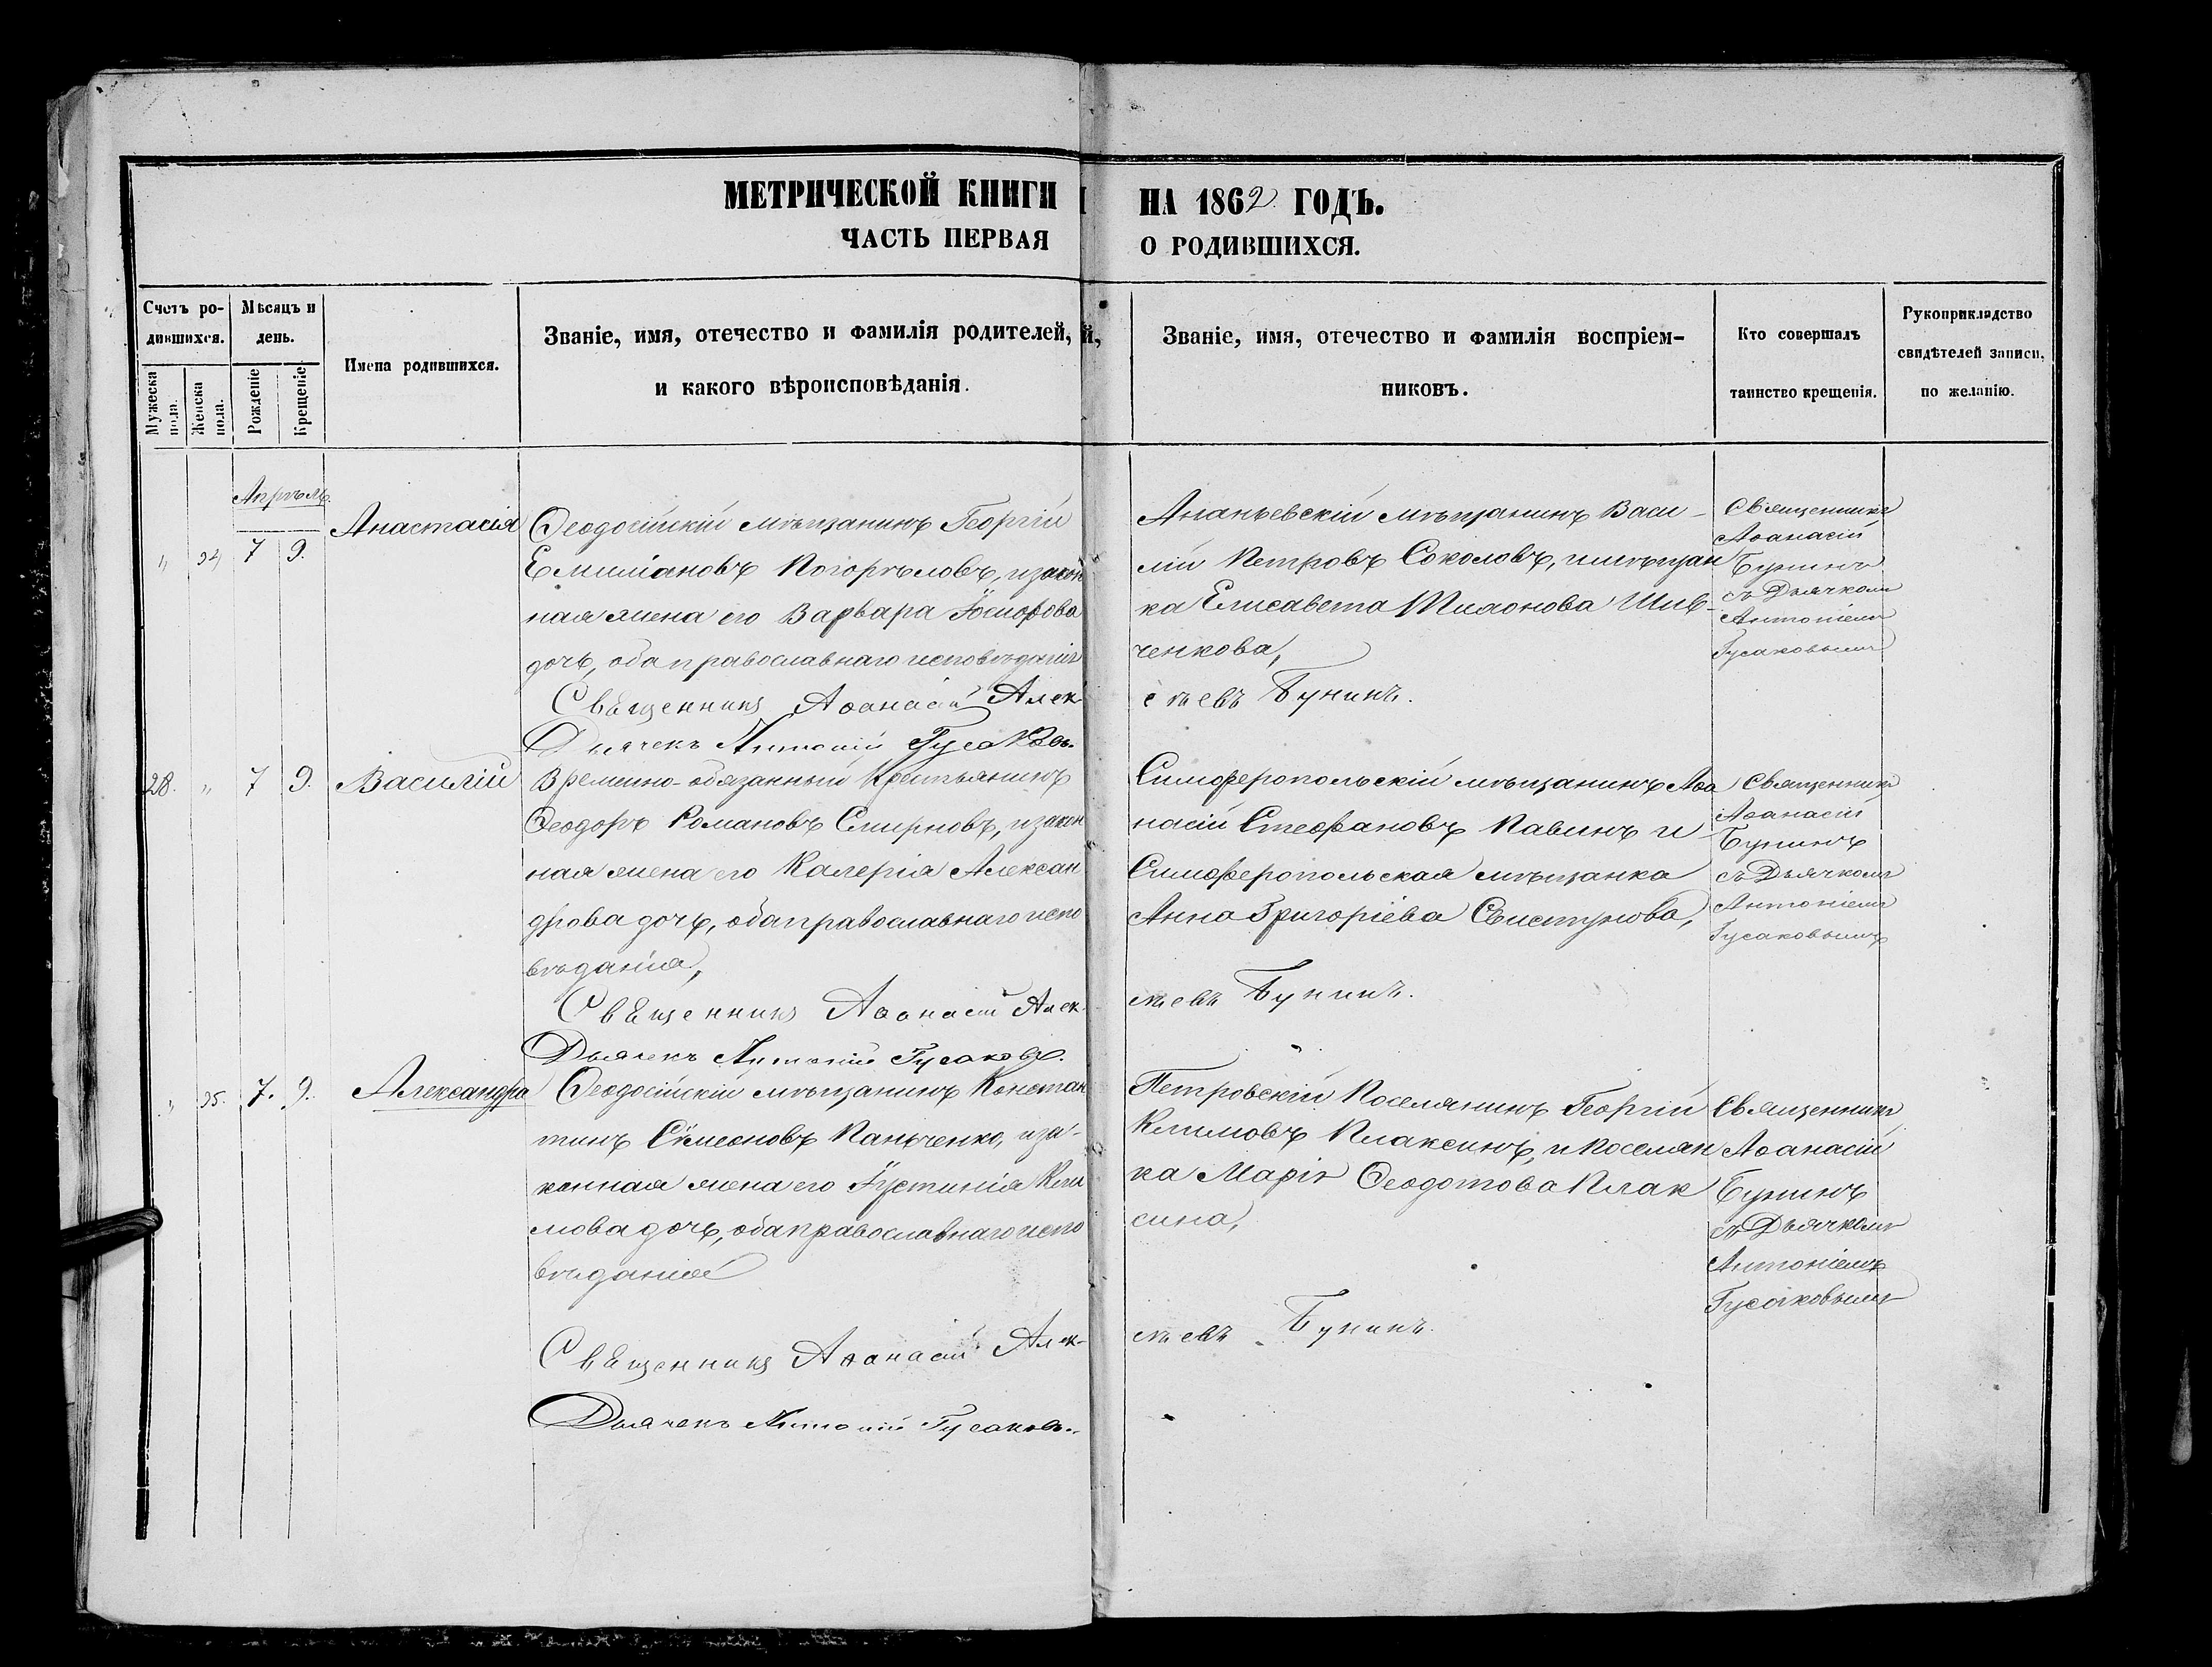 МЕТРИЧЕСКОЙ КНИГИ НА 1862 ГОДЪ.
ЧАСТЬ ПЕРВАЯ О РОДИВШИХСЯ.
Счетъ ро-
дившихся.
Мужеска пола.
Женска пола.
Мѣсяцъ и
день.
Рожденіе
Крещеніе
Имена родившихся.
Званіе, имя, отечество и фамилія родителей,
и какого вѣроисповѣданія.
Званіе, имя, отечество и фамилія воспріем-
никовъ.
Кто совершалъ
таинство крещенія.
Рукоприкладство
свидѣтелей записи,
по желанію.
Апрѣль
„ 24 7 9. Анастасія
Ѳеодосійскій мѣщанинъ Георгій
Емиліановъ Погорѣловъ, и закон
ная жена его Варвара Іосифова
дочь, оба православнаго исповѣданія
Священникъ Аѳанасій Алек
Дьячекъ Антоній Гусаковъ.
Ананьевскій мѣщанинъ Васи-
лій Петровъ Соколовъ, и мѣщан
ка Елисавета Тимонова Шев-
ченкова,
сѣевъ Бунинъ.
Священникъ
Аѳанасій
Бунинъ
съ Дьячкомъ
Антоніемъ
Гусаковымъ
28. „ 7 9. Василій
Временно-обязанный Крестьянинъ
Ѳеодоръ Романовъ Смирновъ, и закон
ная жена его Калерія Алексан
дрова дочь, оба православнаго испо
вѣданія,
Священникъ Аѳанасій Алек
Дьячекъ Антоній Гусаковъ.
Симферопольскій мѣщанинъ Аѳа
насій Стефановъ Павинъ и
Симферопольская мѣщанка
Анна Григоріева Свистунова,
сѣевъ Бунинъ.
Священникъ
Аѳанасій
Бунинъ
съ Дьячкомъ
Антоніемъ
Гусаковымъ
„ 25. 7. 9. Александра
Ѳеодосійскій мѣщанинъ Констан
тинъ Симеоновъ Паньченко, и за-
конная жена его Іустинія Кли
мова дочь, оба православнаго испо
вѣданія
Священникъ Аѳанасій Алек-
Дьячекъ Антоній Гусаковъ.
Петровскій Поселянинъ Георгій
Климовъ Плаксинъ, и поселян
ка Марія Ѳеодотова Плак
сина,
сѣевъ Бунинъ.
Священникъ
Аѳанасій
Бунинъ
съ Дьячкомъ
Антоніемъ
Гусаковымъ